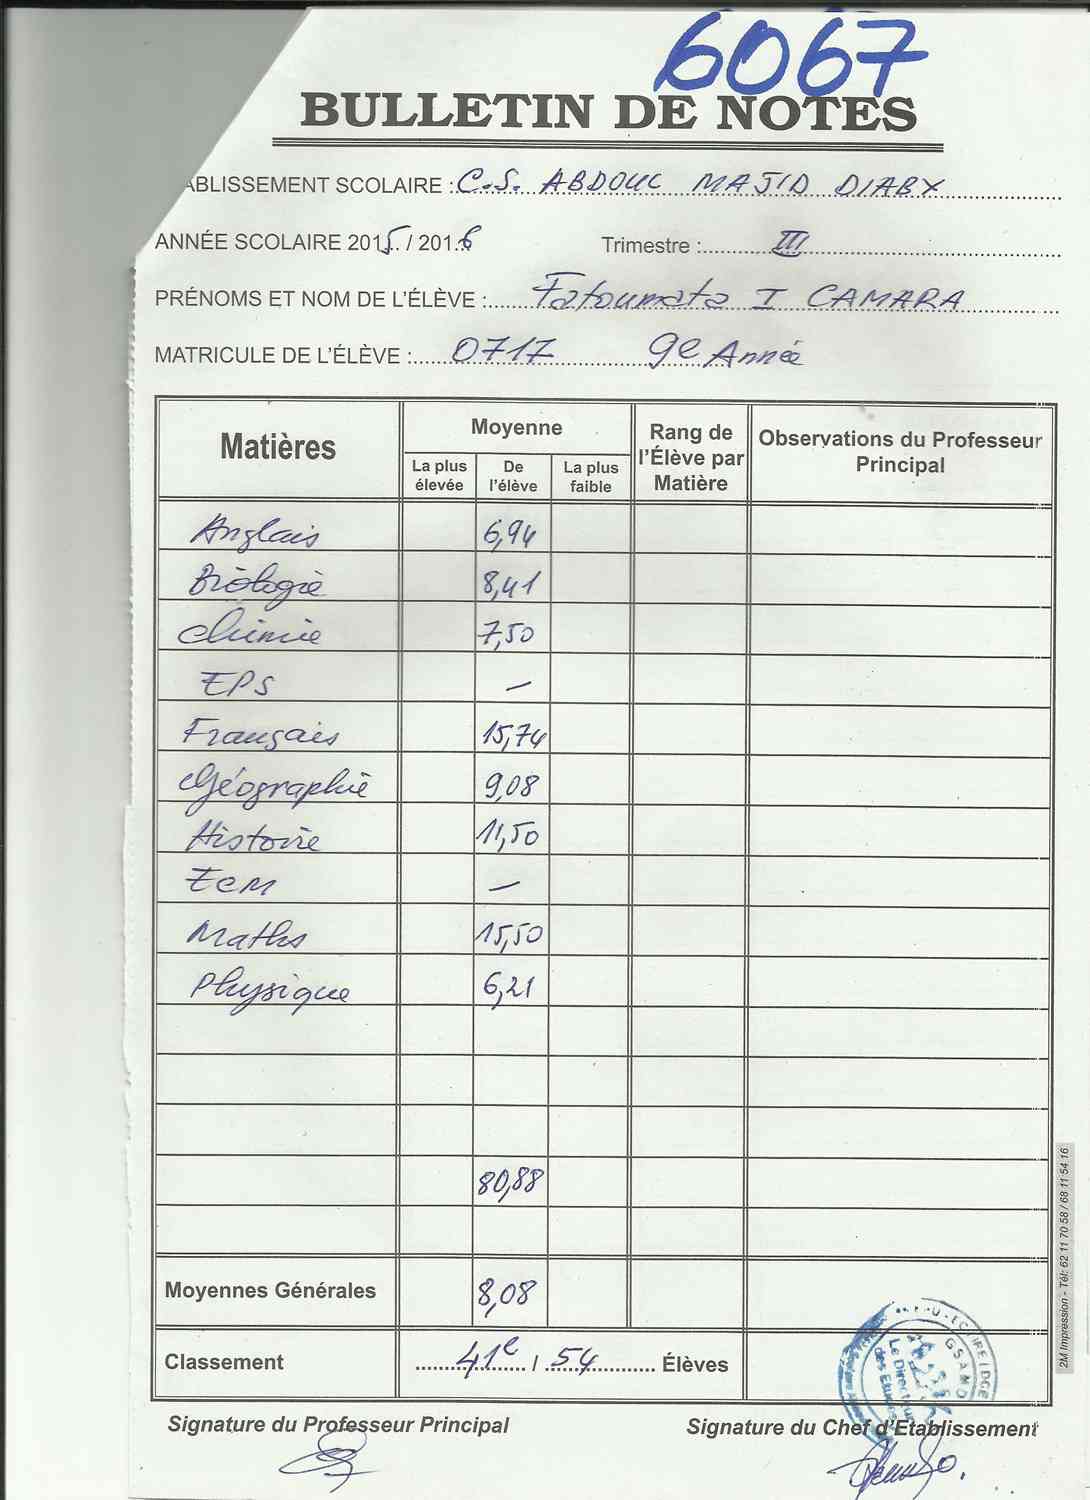 6067
BULLETIN DE NOTES
ABLISSEMENT SCOLAIRE : C.S. ABDOUL MAJID DIABY
ANNÉE SCOLAIRE 2015 / 2016 Trimestre : III
PRÉNOMS ET NOM DE L'ÉLÈVE : Fatoumata I CAMARA
MATRICULE DE L'ÉLÈVE : 0717 9e Année
Matières
Moyenne
La plus élevée
De l'élève
La plus faible
Rang de l'Élève par Matière
Observations du Professeur Principal
Anglais 6,94
Biologie 8,41
Chimie 7,50
EPS –
Français 15,74
Géographie 9,08
Histoire 11,50
ECM –
Maths 15,50
Physique 6,21
80,88
Moyennes Générales 8,08
Classement 41e / 54 Élèves
Signature du Professeur Principal
Signature du Chef d'Etablissement
GSAMD
Le Directeur
des Etudes
2M Impression - Tél: 62 11 70 58 / 68 11 54 16